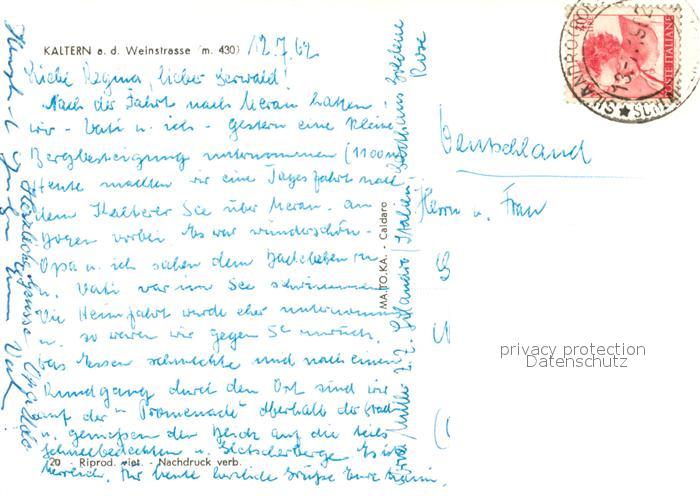 KALTERN a. d. Weinstrasse (m. 430)
12.7.62
Liebe Regina, lieber Gerwald!
Nach der Fahrt nach Meran hatten
wir - Vati u. ich - gestern eine kleine
Bergbesteigung unternommen (1100 m)
Heute machten wir eine Tagesfahrt nach
dem Kalterer See über Meran. an
Bozen vorbei. Es war wunderschön -
Opa u. ich sahen dem Badeleben zu
u. Vati war im See schwimmen
Die Heimfahrt wurde eher unternommen
u. so waren wir gegen 5h zurück.
Das Essen schmeckte und nach einem
Rundgang durch den Ort sind wir
auf der "Promenade" oberhalb der Stadt
u. genießen den Blick auf die teils
schneebedeckten u. Gletscherberge. Es ist
herrlich. Für heute herzliche Grüße Eure
20 - Riprod. viet. - Nachdruck verb.
Herzliche Grüsse Opa
Euer Vati
MA.TO.KA. - Caldaro
Müller z. Z. Silandro / Italien Gasthaus Goldene
Rose
POSTE ITALIANE
SILANDRO
Deutschland
Herrn u. Frau
privacy protection
Datenschutz